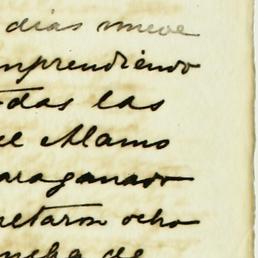 dias nueve
mprendiendo
odas las
el Alamo
araganado
retaron ocho
ncha de